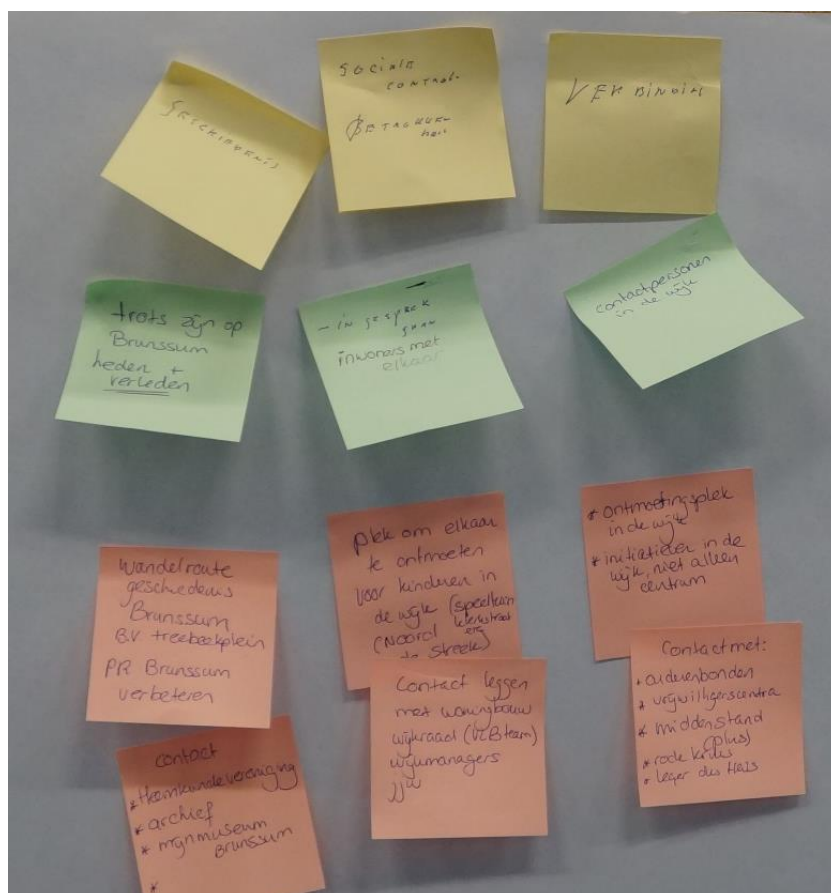 GESCHIEDENIS
SOCIALE
CONTROL.
BETROKKEN
HEID
VERBINDIN
trots zijn op
Brunssum
heden +
verleden
- in gesprek
gaan
inwoners met
elkaar
contactpersonen
in de wijk
Wandelroute
geschiedenis
Brunssum
BV treebeekplein
PR Brunssum
verbeteren
plek om elkaar
te ontmoeten
voor kinderen in
de wijk (speeltuin
(Noord
streek)
* ontmoetingsplek
in de wijk
* initiatieven in de
wijk, niet alleen
centrum
contact
* Heemkundevereniging
* archief
* mijnmuseum
Brunssum
*
Contact leggen
met woningbouw
wijkraad (team)
wijkmanagers
JJW
Contact met:
* ouderenbonden
* vrijwilligerscentra
* middenstand
(plus)
* rode kruis
* leger des Heils